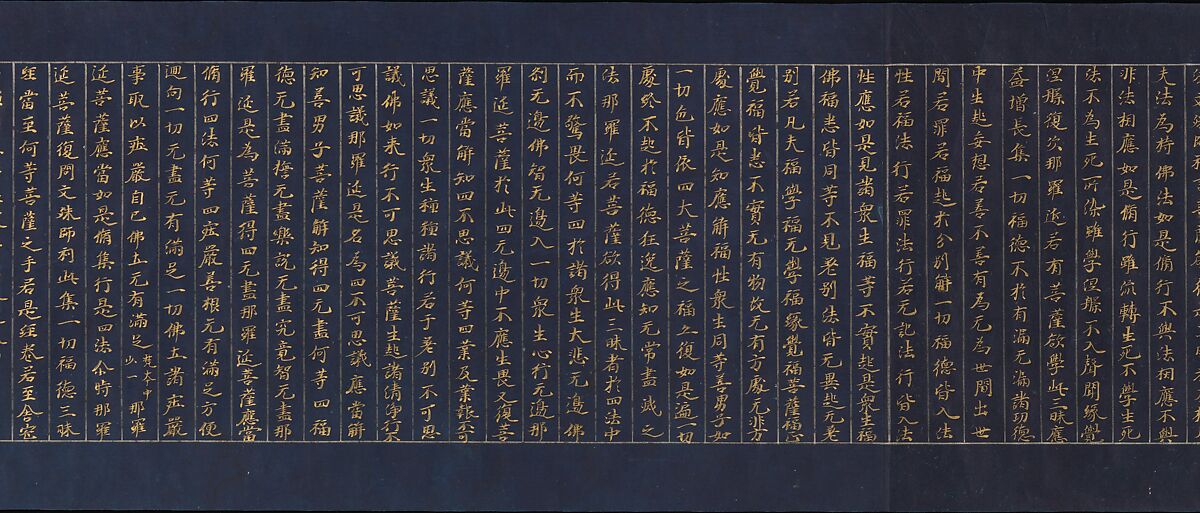 夫法為持佛法如是脩行不與法相應不與
非法相應如是脩行雖篋轉生死不學生死
法不為生死所染雖學涅槃不入聲聞緣覺
涅槃復次那羅延若有菩薩欲學此三昧應
益增長集一切福德不於有漏无漏諸功德
中生起妄想若善不善有為无為世間出世
間若罪若福起於分別解一切福德皆入法
性若福法行若罪法行若无記法行皆入法
性應如是見諸眾生福等不實起是眾生福
佛福悉皆同等不見差別法皆无異起无差
別若凡夫福學福无學福緣覺福菩薩福正
覺福皆悉不實无有物故无有方處无非方
處應如是知應解福性眾生同等善男子如
一切色皆依四大菩薩之福亦復如是遍一切
處終不起於福德狂逸應知无常盡滅之
法那羅延若菩薩欲得此三昧者於四法中
而不驚畏何等四於諸眾生大悲无邊佛
剎无邊佛智无邊入一切眾生心行无邊那
羅延菩薩於此四无邊中不應生畏又復菩
薩應當解知四不思議何等四業及業報不可
思議一切眾生種種諸行若干差別不可思
議佛如來行不可思議菩薩生起諸清淨行不
可思議那羅延是名為四不可思議應當解
知善男子菩薩解知得四无盡何等四福
德无盡滿捴无盡樂說无盡究竟智无盡那
羅延是為菩薩得四无盡那羅延菩薩應當
脩行四法何等四莊嚴善根无有滿足方便
迴向一切无盡无有滿足一切佛土諸莊嚴
事取以莊嚴自己佛土无有滿足梵本中少一那羅
延菩薩應當如是脩集行是四法尒時那羅
延菩薩復問文殊師利此集一切福德三昧
經當至何等菩薩之手若是經卷若至舍宅